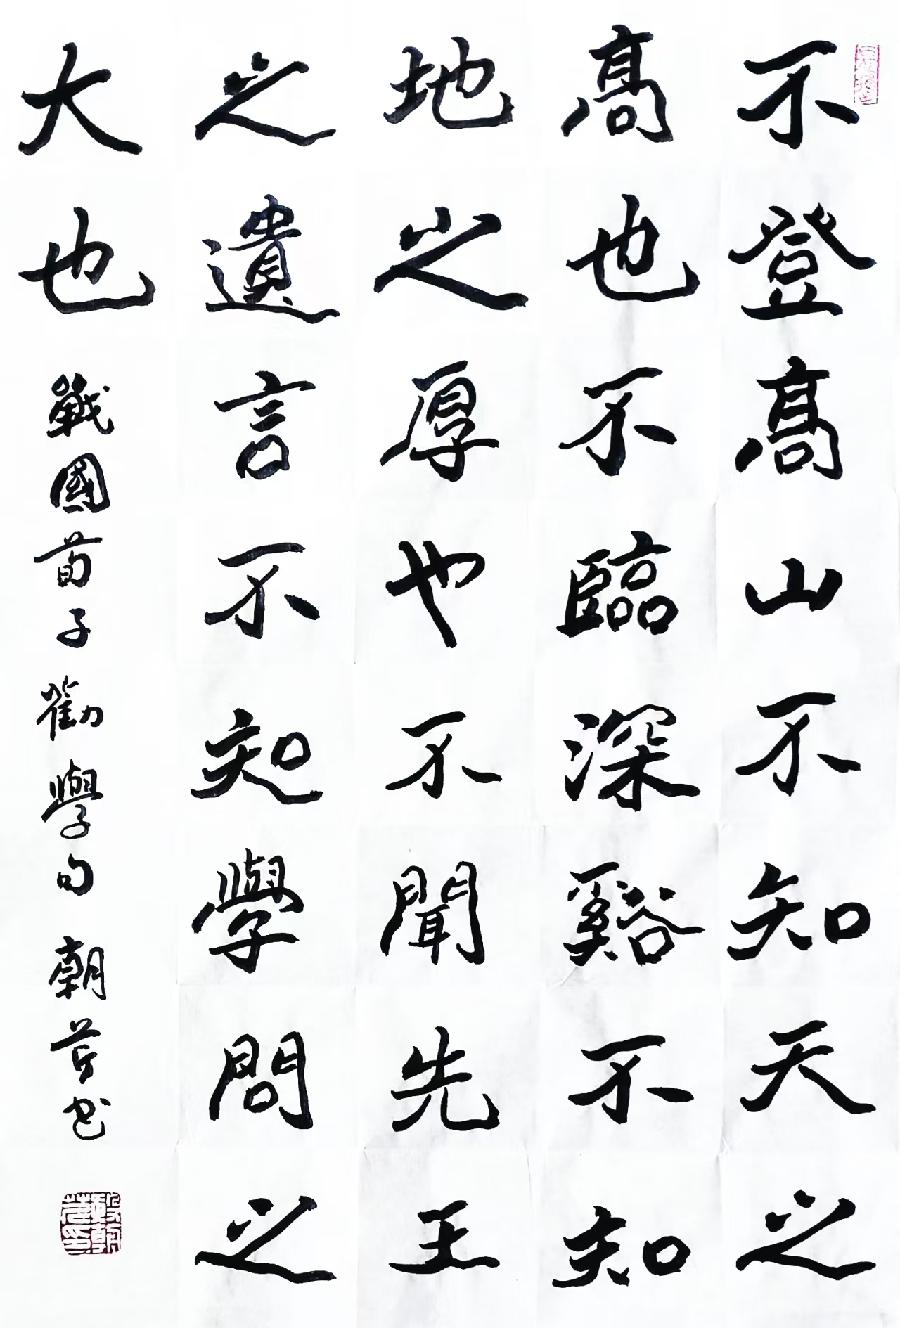 不登高山不知天之
高也不臨深谿不知
地之厚也不聞先王
之遺言不知學問之
大也
戰國荀子勸學句 朝芳書